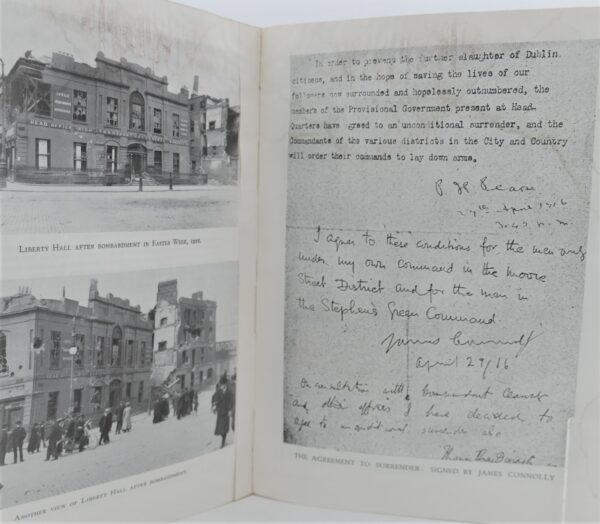 HEAD OFFICE
LIBERTY HALL AFTER BOMBARDMENT IN EASTER WEEK, 1916.
ANOTHER VIEW OF LIBERTY HALL AFTER BOMBARDMENT.
In order to prevent the further slaughter of Dublin
citizens, and in the hope of saving the lives of our
followers now surrounded and hopelessly outnumbered, the
members of the Provisional Government present at Head-
Quarters have agreed to an unconditional surrender, and the
Commandants of the various districts in the City and Country
will order their commands to lay down arms.
P. H. Pearse
29th April 1916
3.45 p.m.
I agree to these conditions for the men only
under my own command in the Moore
Street District and for the men in
the Stephen's Green Command.
James Connolly
April 29/16
On consultation with Commandant Ceannt
and other officers I have decided to
agree to unconditional surrender also
THE AGREEMENT TO SURRENDER: SIGNED BY JAMES CONNOLLY